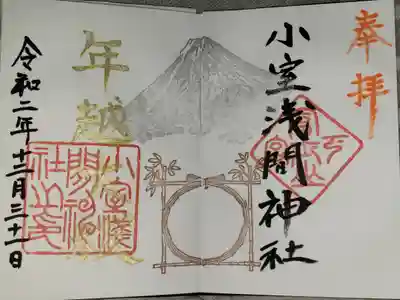 奉拝
小室浅間神社
年越
令和二年十二月三十一日
小室浅
間神
社之印